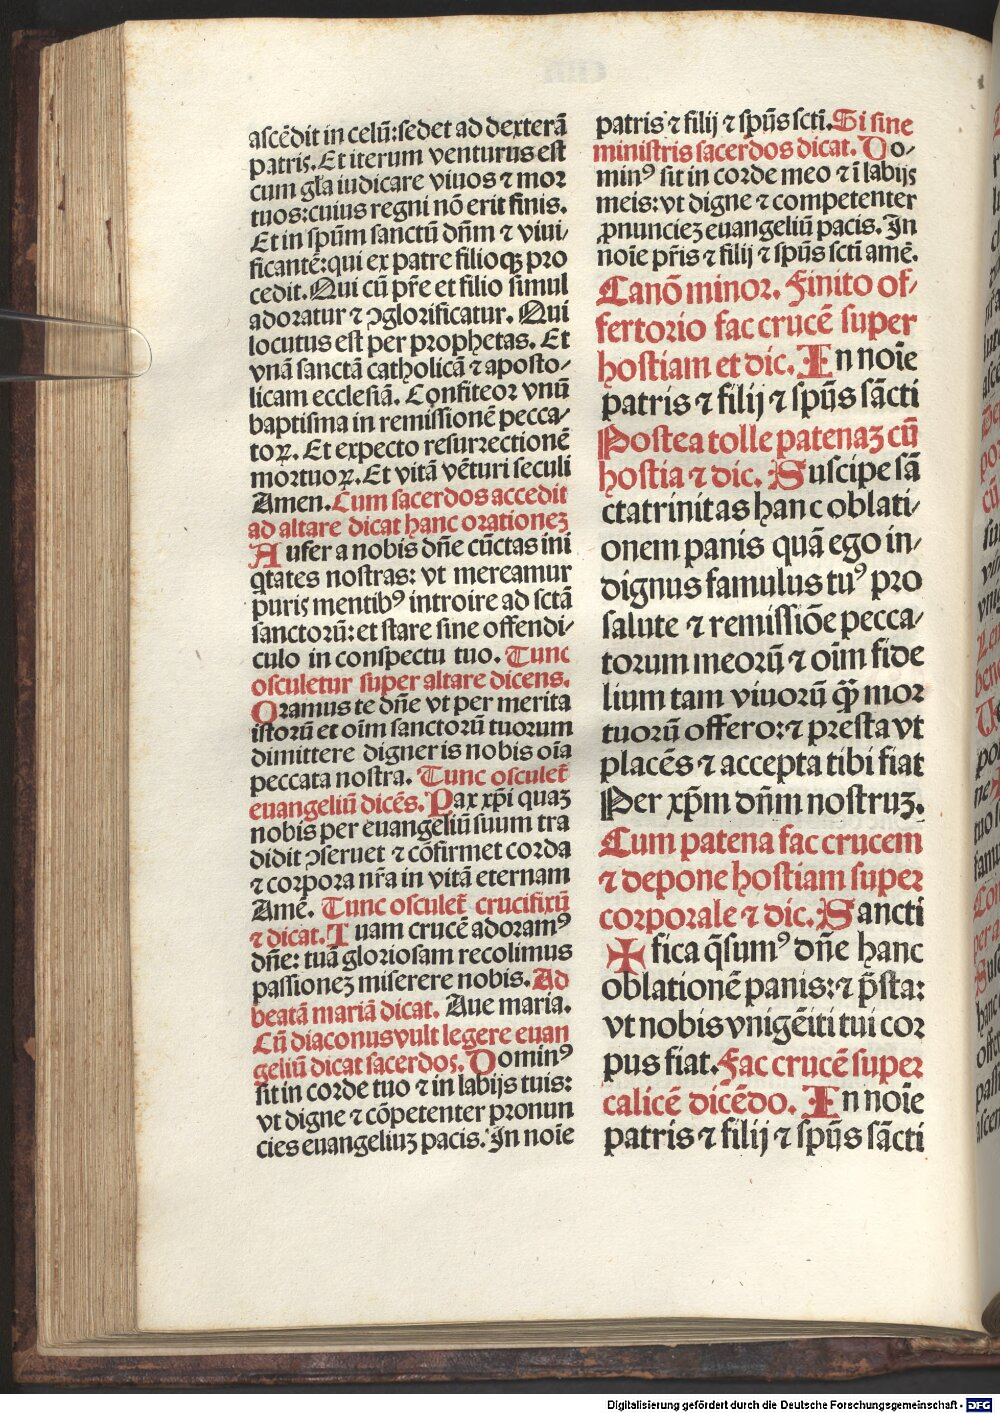 ascẽdit in celũ: sedet ad dexterã
patris. Et iterum venturus est
cum gl̃a iudicare viuos ⁊ mor
tuos: cuius regni nõ erit finis.
Et in sp̃um sanctũ dñm ⁊ viui/
ficantẽ: qui ex patre filioqꝫ pro
cedit. Qui cũ p̃re et filio simul
adoratur ⁊ ꝯglorificatur. Qui
locutus est per prophetas. Et
vnã sanctã catholicã ⁊ aposto/
licam ecclesiã. Confiteor vnũ
baptisma in remissionẽ pecca/
toꝝ. Et expecto resurrectionẽ
mortuoꝝ. Et vitã vẽturi seculi
Amen. Cum sacerdos accedit
ad altare dicat hanc orationeꝫ
Aufer a nobis dñe cũctas ini
q̃tates nostras: vt mereamur
puris mentibꝰ introire ad sctã
sanctorũ: et stare sine offendi/
culo in conspectu tuo. Tunc
osculetur super altare dicens.
Oramus te dñe vt per merita
istorũ et oĩm sanctorũ tuorum
dimittere digneris nobis oĩa
peccata nostra. Tunc osculet᷑
euangeliũ dicẽs. Pax xp̃i quaꝫ
nobis per euangeliũ suum tra
didit ꝯseruet ⁊ cõfirmet corda
⁊ corpora nr̃a in vitã eternam
Amẽ. Tunc osculet᷑ crucifixũ
⁊ dicat. Tuam crucẽ adoramꝰ
dñe: tuã gloriosam recolimus
passioneꝫ miserere nobis. Ad
beatã mariã dicat. Aue maria.
Cũ diaconus vult legere euan
geliũ dicat sacerdos. Dominꝰ
sit in corde tuo ⁊ in labijs tuis:
vt digne ⁊ cõpetenter pronun
cies euangeliuꝫ pacis. In noĩe
patris ⁊ filij ⁊ sp̃us scti. Si sine
ministris sacerdos dicat. Do/
minꝰ sit in corde meo ⁊ ĩ labijs
meis: vt digne ⁊ competenter
ꝓnuncieꝫ euangeliũ pacis. In
noĩe p̃ris ⁊ filij ⁊ sp̃us scti amẽ.
Canõ minor. Finito of/
fertorio fac crucẽ super
hostiam et dic. In noĩe
patris ⁊ filij ⁊ sp̃us sãcti
Postea tolle patenaꝫ cũ
hostia ⁊ dic. Suscipe sã
cta trinitas hanc oblati/
onem panis quã ego in/
dignus famulus tuꝰ pro
salute ⁊ remissiõe pecca/
torum meorũ ⁊ oĩm fide
lium tam viuorũ q̃ꝫ mor
tuorũ offero: ⁊ presta vt
placẽs ⁊ accepta tibi fiat
Per xp̃m dñm nostruꝫ.
Cum patena fac crucem
⁊ depone hostiam super
corporale ⁊ dic. Sancti
✠ fica q̃sumꝰ dñe hanc
oblationẽ panis: ⁊ p̃sta:
vt nobis vnigẽiti tui cor
pus fiat. Fac crucẽ super
calicẽ dicẽdo. In noĩe
patris ⁊ filij ⁊ sp̃us sãcti
Digitalisierung gefördert durch die Deutsche Forschungsgemeinschaft - DFG